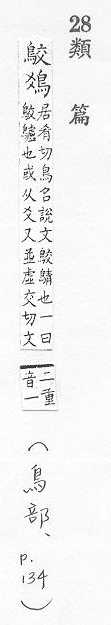 28 類篇
鵁
居肴切鳥名說文鵁鶄也一曰
鵁鸕也或从爻又並虛交切文
二重
音一
(鳥部、p.134)